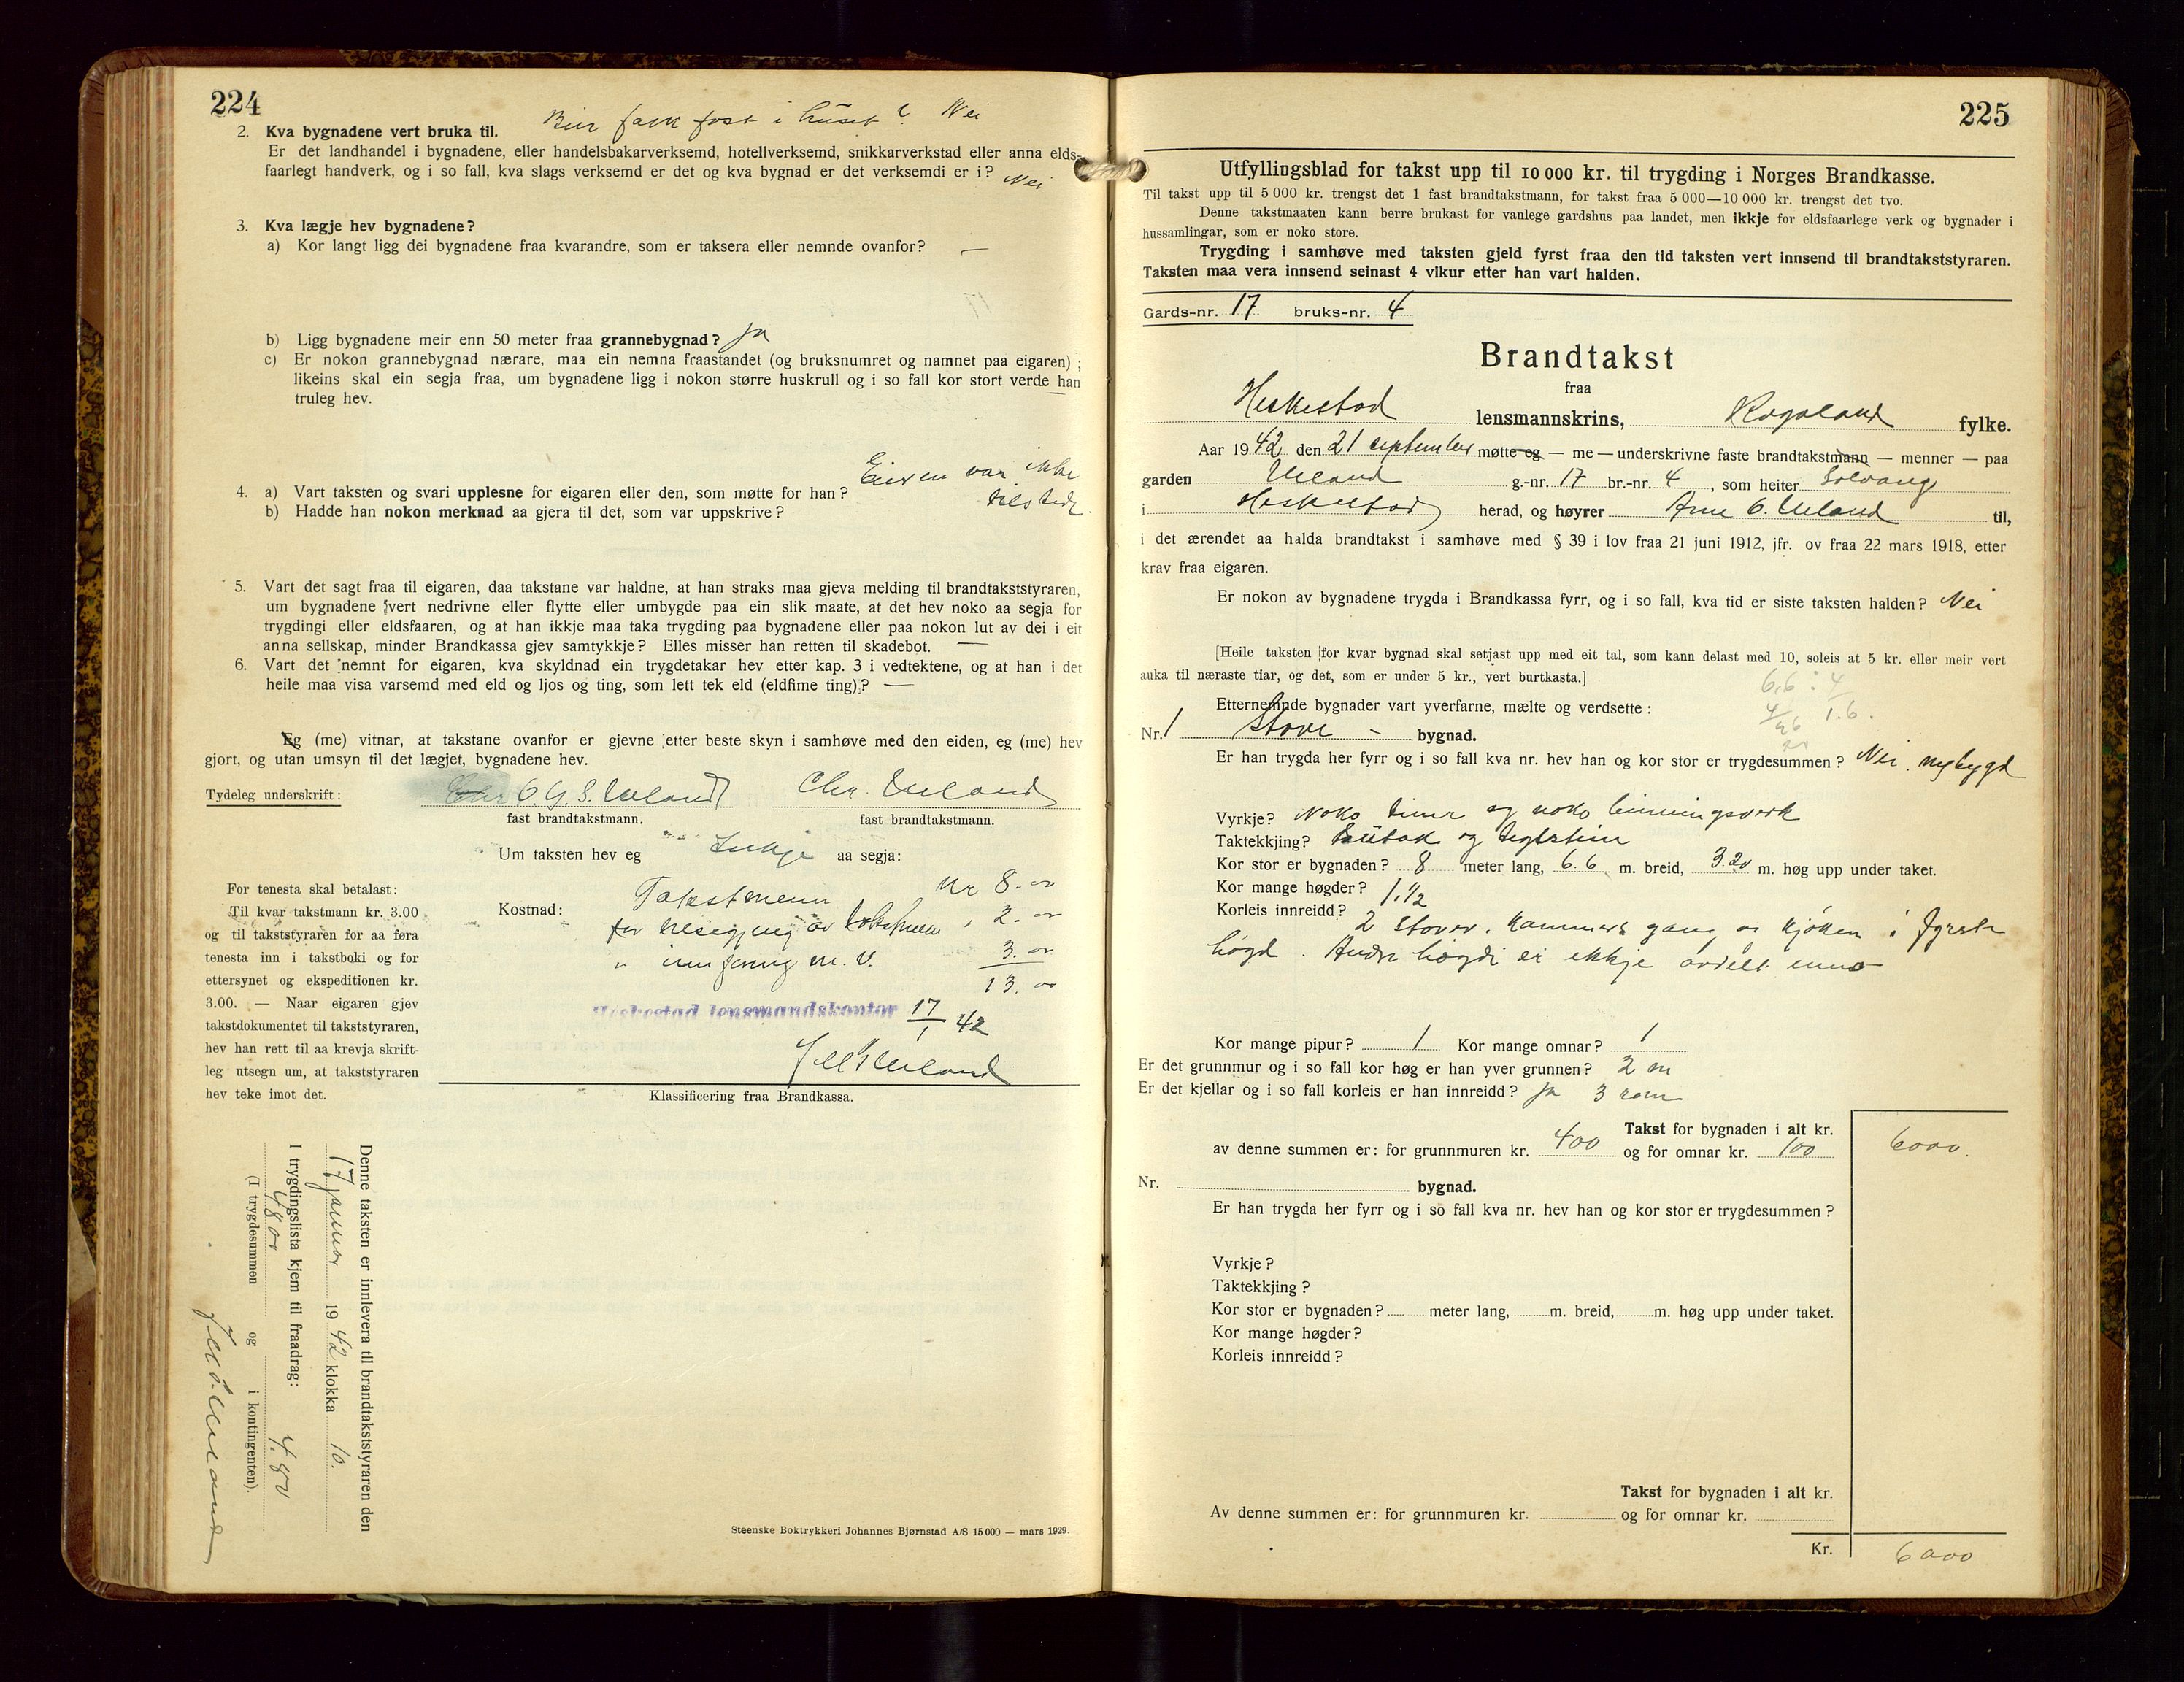 224
2. Kva bygnadene vert bruka til. Bur folk fast i huset? Nei
Er det landhandel i bygnadene, eller handelsbakarverksemd, hotellverksemd, snikkarverkstad eller anna elds-
faarlegt handverk, og i so fall, kva slags verksemd er det og kva bygnad er det verksemdi er i? Nei
3. Kva lægje hev bygnadene?
a) Kor langt ligg dei bygnadene fraa kvarandre, som er taksera eller nemnde ovanfor? —
b) Ligg bygnadene meir enn 50 meter fraa grannebygnad? Ja
c) Er nokon grannebygnad nærare, maa ein nemna fraastandet (og bruksnumret og namnet paa eigaren);
likeins skal ein segja fraa, um bygnadene ligg i nokon større huskrull og i so fall kor stort verde han
truleg hev. —
4. a) Vart taksten og svari upplesne for eigaren eller den, som møtte for han? Eieren var ikke
b) Hadde han nokon merknad aa gjera til det, som var uppskrive? tilstede.
5. Vart det sagt fraa til eigaren, daa takstane var haldne, at han straks maa gjeva melding til brandtakststyraren,
um bygnadene vert nedrivne eller flytte eller umbygde paa ein slik maate, at det hev noko aa segja for
trygdingi eller eldsfaaren, og at han ikkje maa taka trygding paa bygnadene eller paa nokon lut av dei i eit
anna sellskap, minder Brandkassa gjev samtykkje? Elles misser han retten til skadebot. —
6. Vart det nemnt for eigaren, kva skyldnad ein trygdetakar hev etter kap. 3 i vedtektene, og at han i det
heile maa visa varsemd med eld og ljos og ting, som lett tek eld (eldfime ting)? —
Eg (me) vitnar, at takstane ovanfor er gjevne etter beste skyn i samhøve med den eiden, eg (me) hev
gjort, og utan umsyn til det lægjet, bygnadene hev.
Tydeleg underskrift: O. G. S. Ueland Chr. Ueland
fast brandtakstmann. fast brandtakstmann.
Um taksten hev eg Inkje aa segja:
For tenesta skal betalast:
Til kvar takstmann kr. 3.00
og til takststyraren for aa føra
tenesta inn i takstboki og for
ettersynet og ekspeditionen kr.
3.00. — Naar eigaren gjev
takstdokumentet til takststyraren,
hev han rett til aa krevja skrift-
leg utsegn um, at takststyraren
hev teke imot det.
Kostnad: Takstmenn kr 8.00
for tilsigjing av takstmenn " 2.00
" innføring m. v. 3.00
13.00
Heskestad lensmandskontor 17/1 42
Ueland
Klassificering fraa Brandkassa.
Denne taksten er innlevera til brandtakststyraren den
17 januar 1942 klokka 10.
I trygdingslista kjem til fraadrag:
4800 4.80
(I trygdesummen og i kontingenten).
Ueland
Steenske Boktrykkeri Johannes Bjørnstad A/S 15 000 — mars 1929.
225
Utfyllingsblad for takst upp til 10 000 kr. til trygding i Norges Brandkasse.
Til takst upp til 5 000 kr. trengst det 1 fast brandtakstmann, for takst fraa 5 000—10 000 kr. trengst det tvo.
Denne takstmaaten kann berre brukast for vanlege gardshus paa landet, men ikkje for eldsfaarlege verk og bygnader i
hussamlingar, som er noko store.
Trygding i samhøve med taksten gjeld fyrst fraa den tid taksten vert innsend til brandtakststyraren.
Taksten maa vera innsend seinast 4 vikur etter han vart halden.
Gards-nr. 17 bruks-nr. 4
Brandtakst
fraa
Heskestad lensmannskrins, Rogaland fylke.
Aar 1942 den 21 september møtte eg — me — underskrivne faste brandtakstmann — menner — paa
garden Ueland g.-nr. 17 br.-nr. 4, som heiter Solvang
i Heskestad herad, og høyrer Arne G. Ueland til,
i det ærendet aa halda brandtakst i samhøve med § 39 i lov fraa 21 juni 1912, jfr. ov fraa 22 mars 1918, etter
krav fraa eigaren.
Er nokon av bygnadene trygda i Brandkassa fyrr, og i so fall, kva tid er siste taksten halden? Nei
[Heile taksten for kvar bygnad skal setjast upp med eit tal, som kann delast med 10, soleis at 5 kr. eller meir vert
auka til næraste tiar, og det, som er under 5 kr., vert burtkasta.]
6.6 : 4
4 1.6.
26
Etternemnde bygnader vart yverfarne, mælte og verdsette:
Nr. 1 Stove - bygnad.
Er han trygda her fyrr og i so fall kva nr. hev han og kor stor er trygdesummen? Nei. nybygd
Vyrkje? Noko timr og noko binningsverk
Taktekkjing? sutak og teglstein
Kor stor er bygnaden? 8 meter lang, 6.6 m. breid, 3.20 m. høg upp under taket.
Kor mange høgder? 1.½
Korleis innreidd? 2 stover. Kammers gang og kjøken i fyrste
høgd. Andre høgdi er ikkje avdelt enno
Kor mange pipur? 1 Kor mange omnar? 1
Er det grunnmur og i so fall kor høg er han yver grunnen? 2 m
Er det kjellar og i so fall korleis er han innreidd? Ja 3 rom
Takst for bygnaden i alt kr. 6000.
av denne summen er: for grunnmuren kr. 400 og for omnar kr. 100
Nr. bygnad.
Er han trygda her fyrr og i so fall kva nr. hev han og kor stor er trygdesummen?
Vyrkje?
Taktekkjing?
Kor stor er bygnaden? meter lang, m. breid, m. høg upp under taket.
Kor mange høgder?
Korleis innreidd?
Takst for bygnaden i alt kr.
Av denne summen er: for grunnmuren kr. og for omnar kr.
Kr. 6000